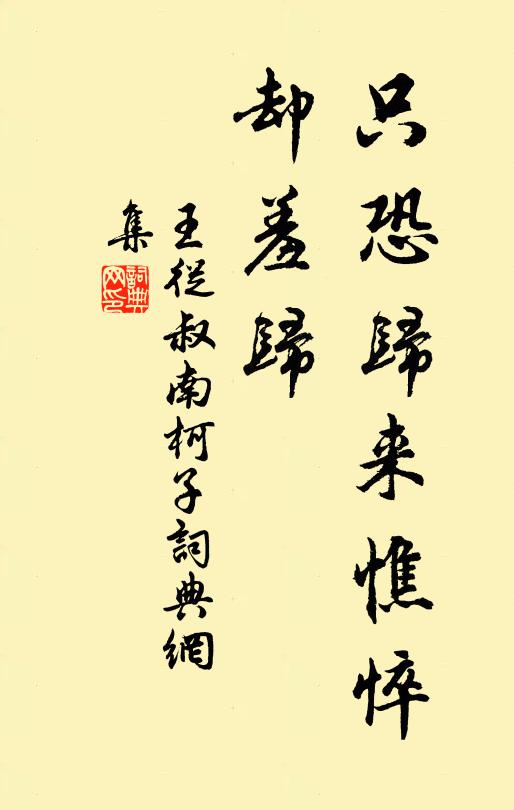 只恐歸来憔悴
却羞歸
王從叔南柯子詞典網
集
詞典
网印